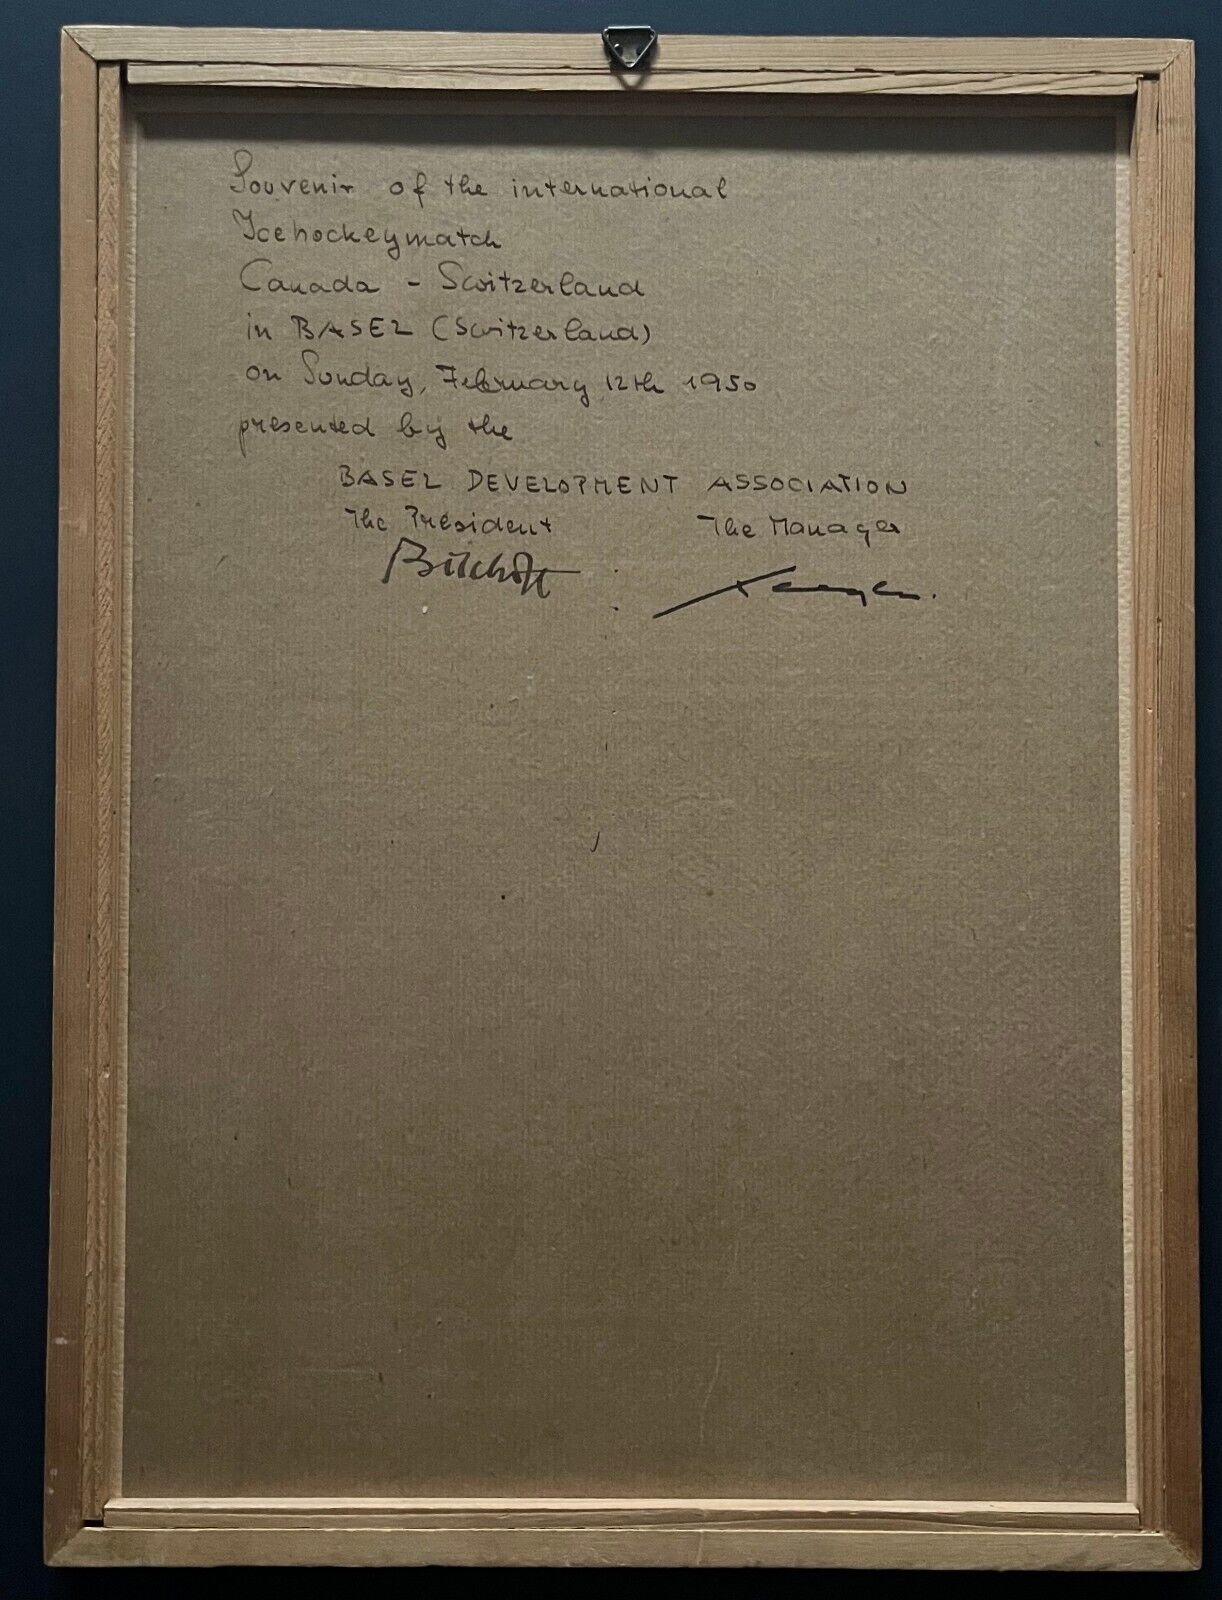 Souvenir of the international
Icehockeymatch
Canada - Switzerland
in BASEL (Switzerland)
on Sunday, February 12th 1950
presented by the
BASEL DEVELOPMENT ASSOCIATION
The President The Manager
Bischoff